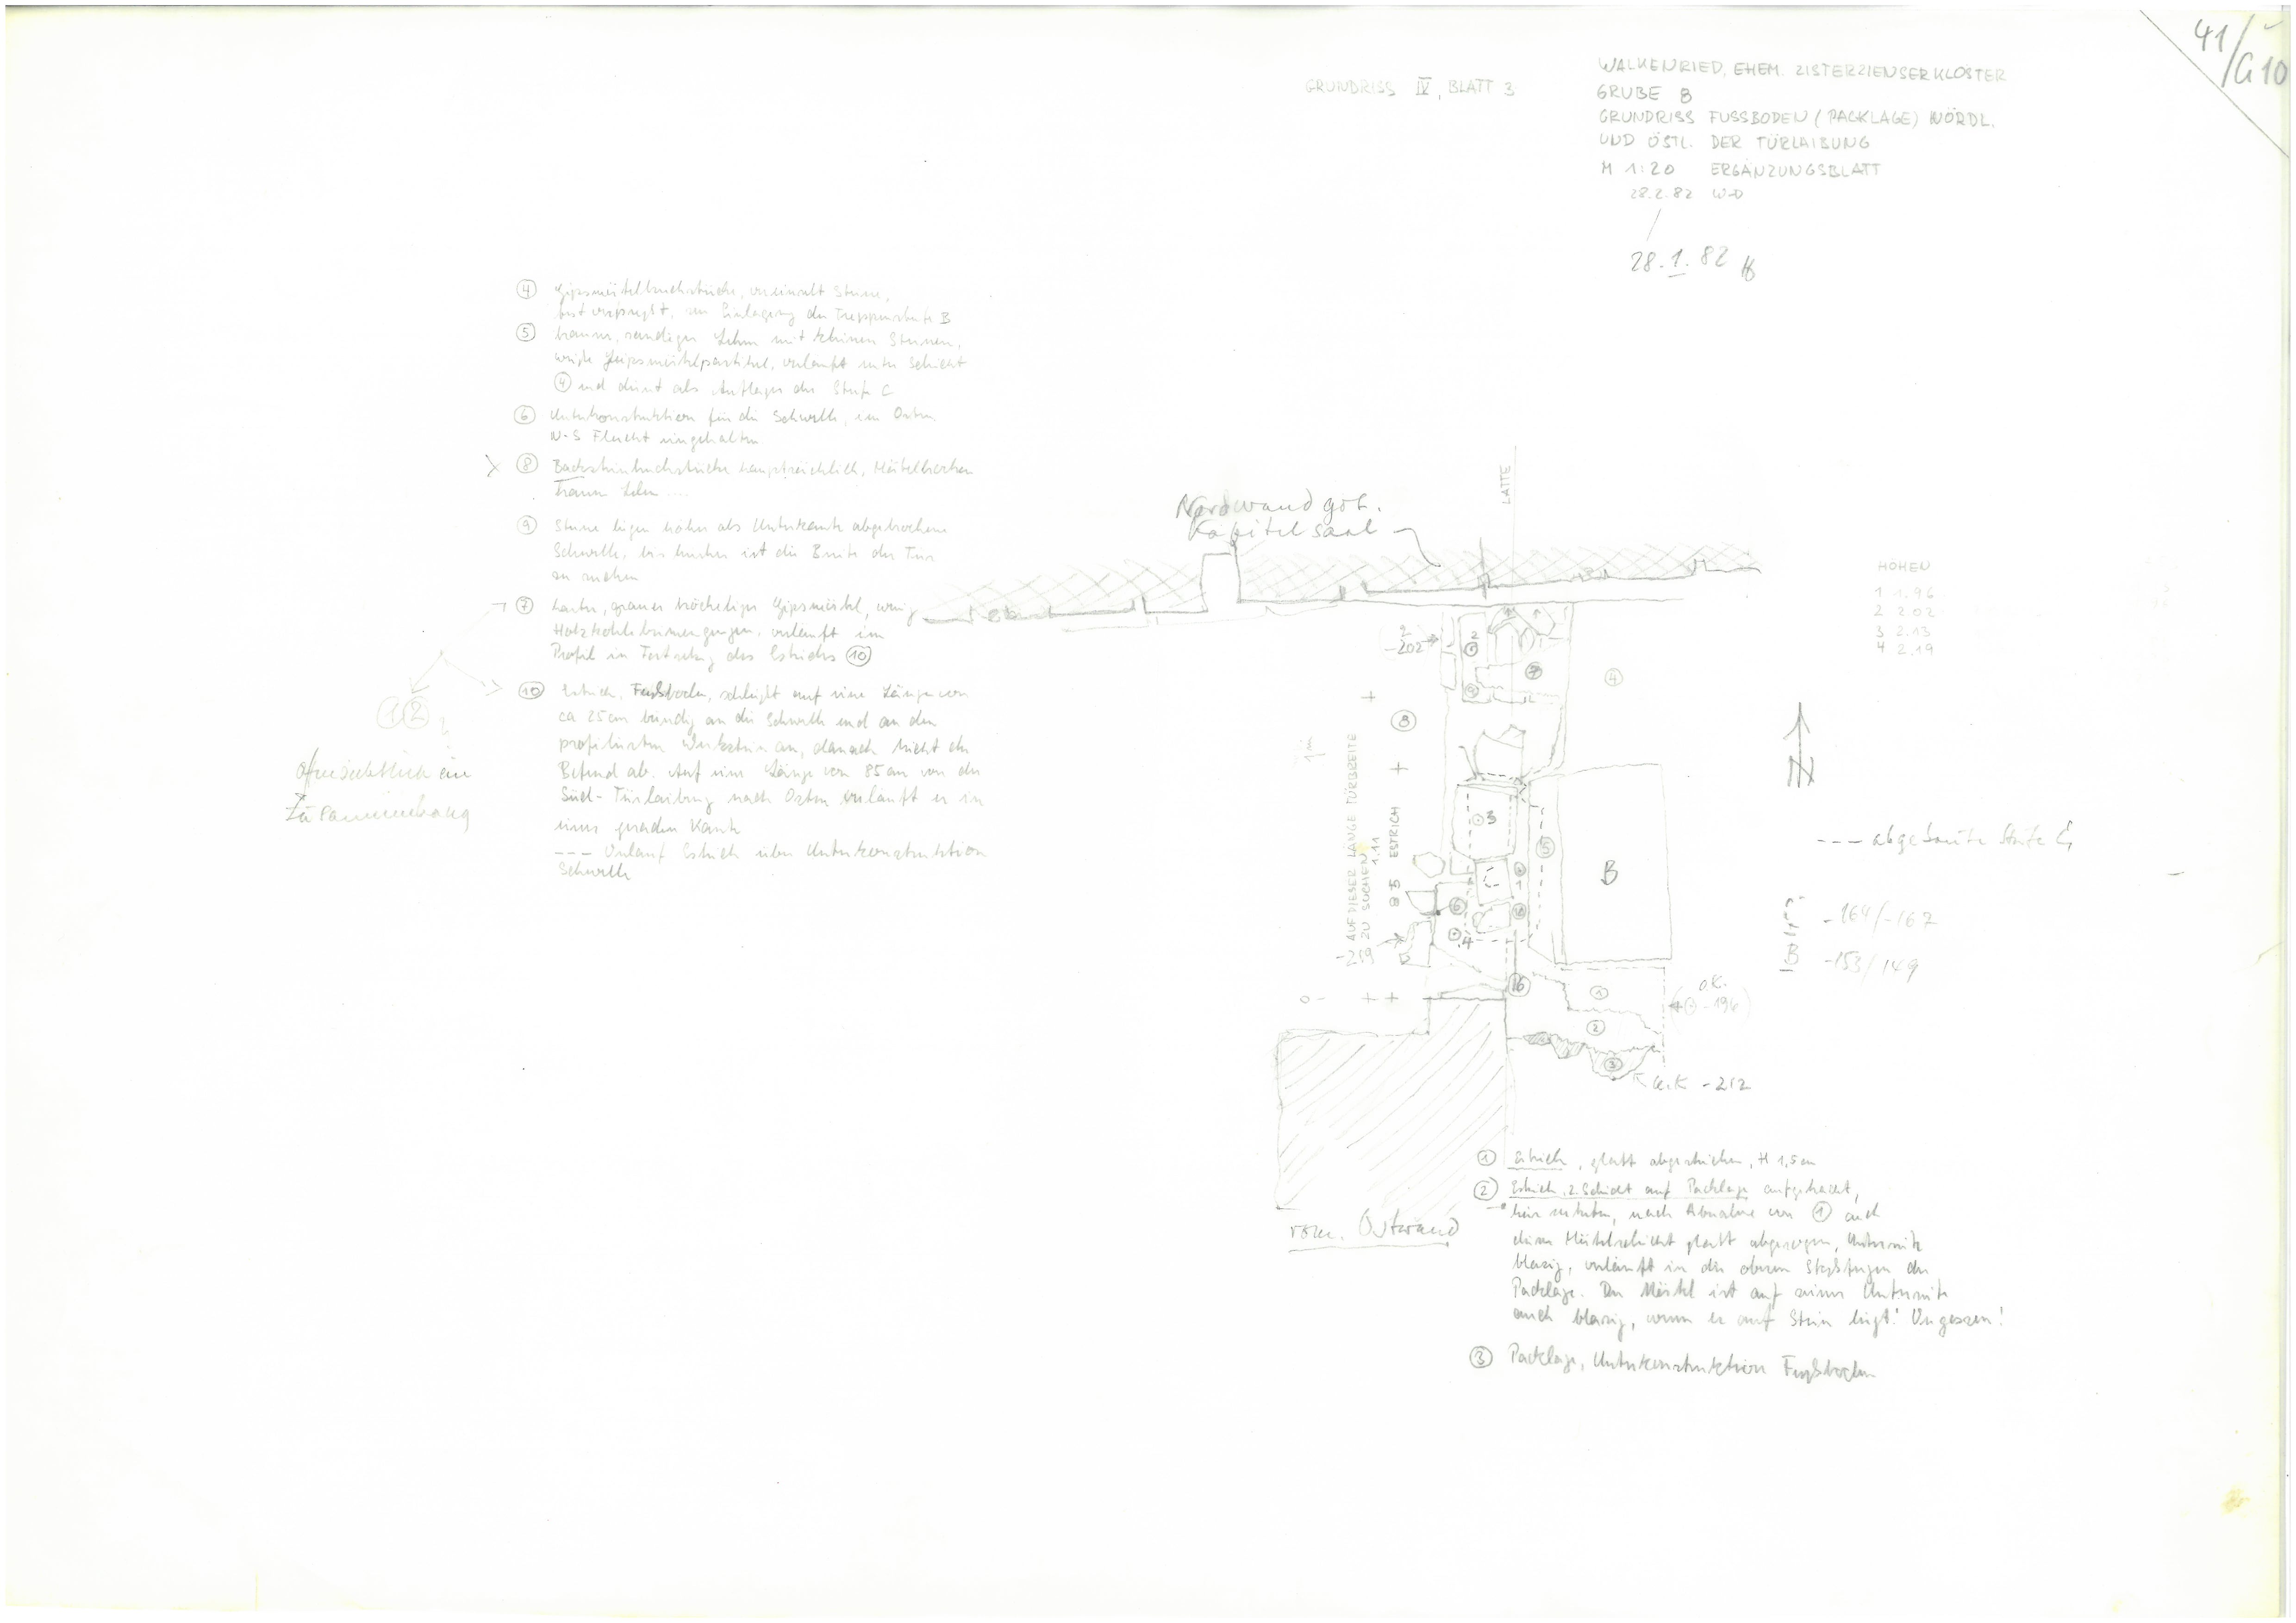 41/G10
GRUNDRISS IV, BLATT 3
WALKENRIED, EHEM. ZISTERZIENSERKLOSTER
GRUBE B
GRUNDRISS FUSSBODEN (PACKLAGE) NÖRDL.
UND ÖSTL. DER TÜRLAIBUNG
M 1:20 ERGÄNZUNGSBLATT
28.2.82 W-D
28.1.82
④ Gipsmörtelbruchstücke, vereinzelt Steine,
fest verfugt, zur Einlagerung der Treppenstufe B
⑤ brauner, sandiger Lehm mit kleinen Steinen,
wenige Gipsmörtelpartikel, verläuft unter Schicht
④ und dient als Auflager der Stufe C
⑥ Unterkonstruktion für die Schwelle, im Osten
N-S Flucht eingehalten
⑧ Backsteinbruchstücke hauptsächlich, Mörtelbrocken
brauner Lehm ....
⑨ Steine liegen höher als Unterkante abgebrochene
Schwelle, bis hierher ist die Breite der Tür
zu suchen
⑦ harter, grauer bröckeliger Gipsmörtel, wenig
Holzkohlebeimengungen, verläuft im
Profil in Fortsetzung des Estrichs ⑩
⑩ Estrich, Fußboden, schlägt auf eine Länge von
ca 25cm bündig an die Schwelle und an den
profilierten Werkstein an, danach bricht der
Befund ab. Auf eine Länge von 85cm von der
Süd-Türlaibung nach Osten verläuft er in
einer geraden Kante
--- Verlauf Estrich über Unterkonstruktion
Schwelle
①②
offensichtlich ein
Zusammenhang
Nordwand got.
Kapitelsaal
LATTE
HÖHEN
1 1.96
2 2.02
3 2.13
4 2.19
2
-202
2
⑨
⑦
④
⑧
AUF DIESER LÄNGE TÜRBREITE
ZU SUCHEN
1.11
85 ESTRICH
3
⑤
B
⑥
4
-219
0
⑩
①
②
③
O.K.
-196
U.K -212
N
--- abgebaute Stufe C
-164/-167
B -153/149
röm. Ostwand
① Estrich, glatt abgestrichen, H 1,5cm
② Estrich, 2. Schicht auf Packlage aufgebracht,
hier unten, nach Abnahme von ① auch
diese Mörtelschicht glatt abgezogen, Unterseite
blasig, verläuft in die oberen Stoßfugen der
Packlage. Der Mörtel ist auf seiner Unterseite
auch blasig, wenn er auf Stein liegt! Vergossen!
③ Packlage, Unterkonstruktion Fußboden